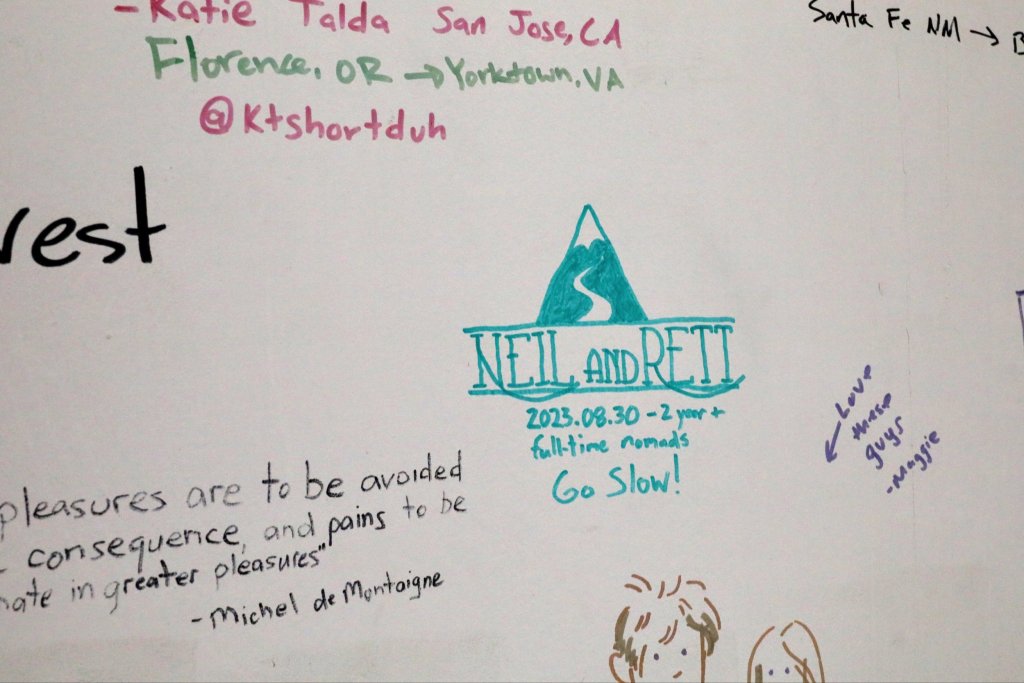 - Katie Talda San Jose, CA
Florence, OR → Yorktown, VA
@Ktshortduh
Santa Fe NM →
NEIL AND RETT
2023.08.30 - 2 year +
full-time nomads
Go Slow!
Love
these
guys
- Maggie
pleasures are to be avoided
consequence, and pains to be
in greater pleasures"
- Michel de Montaigne